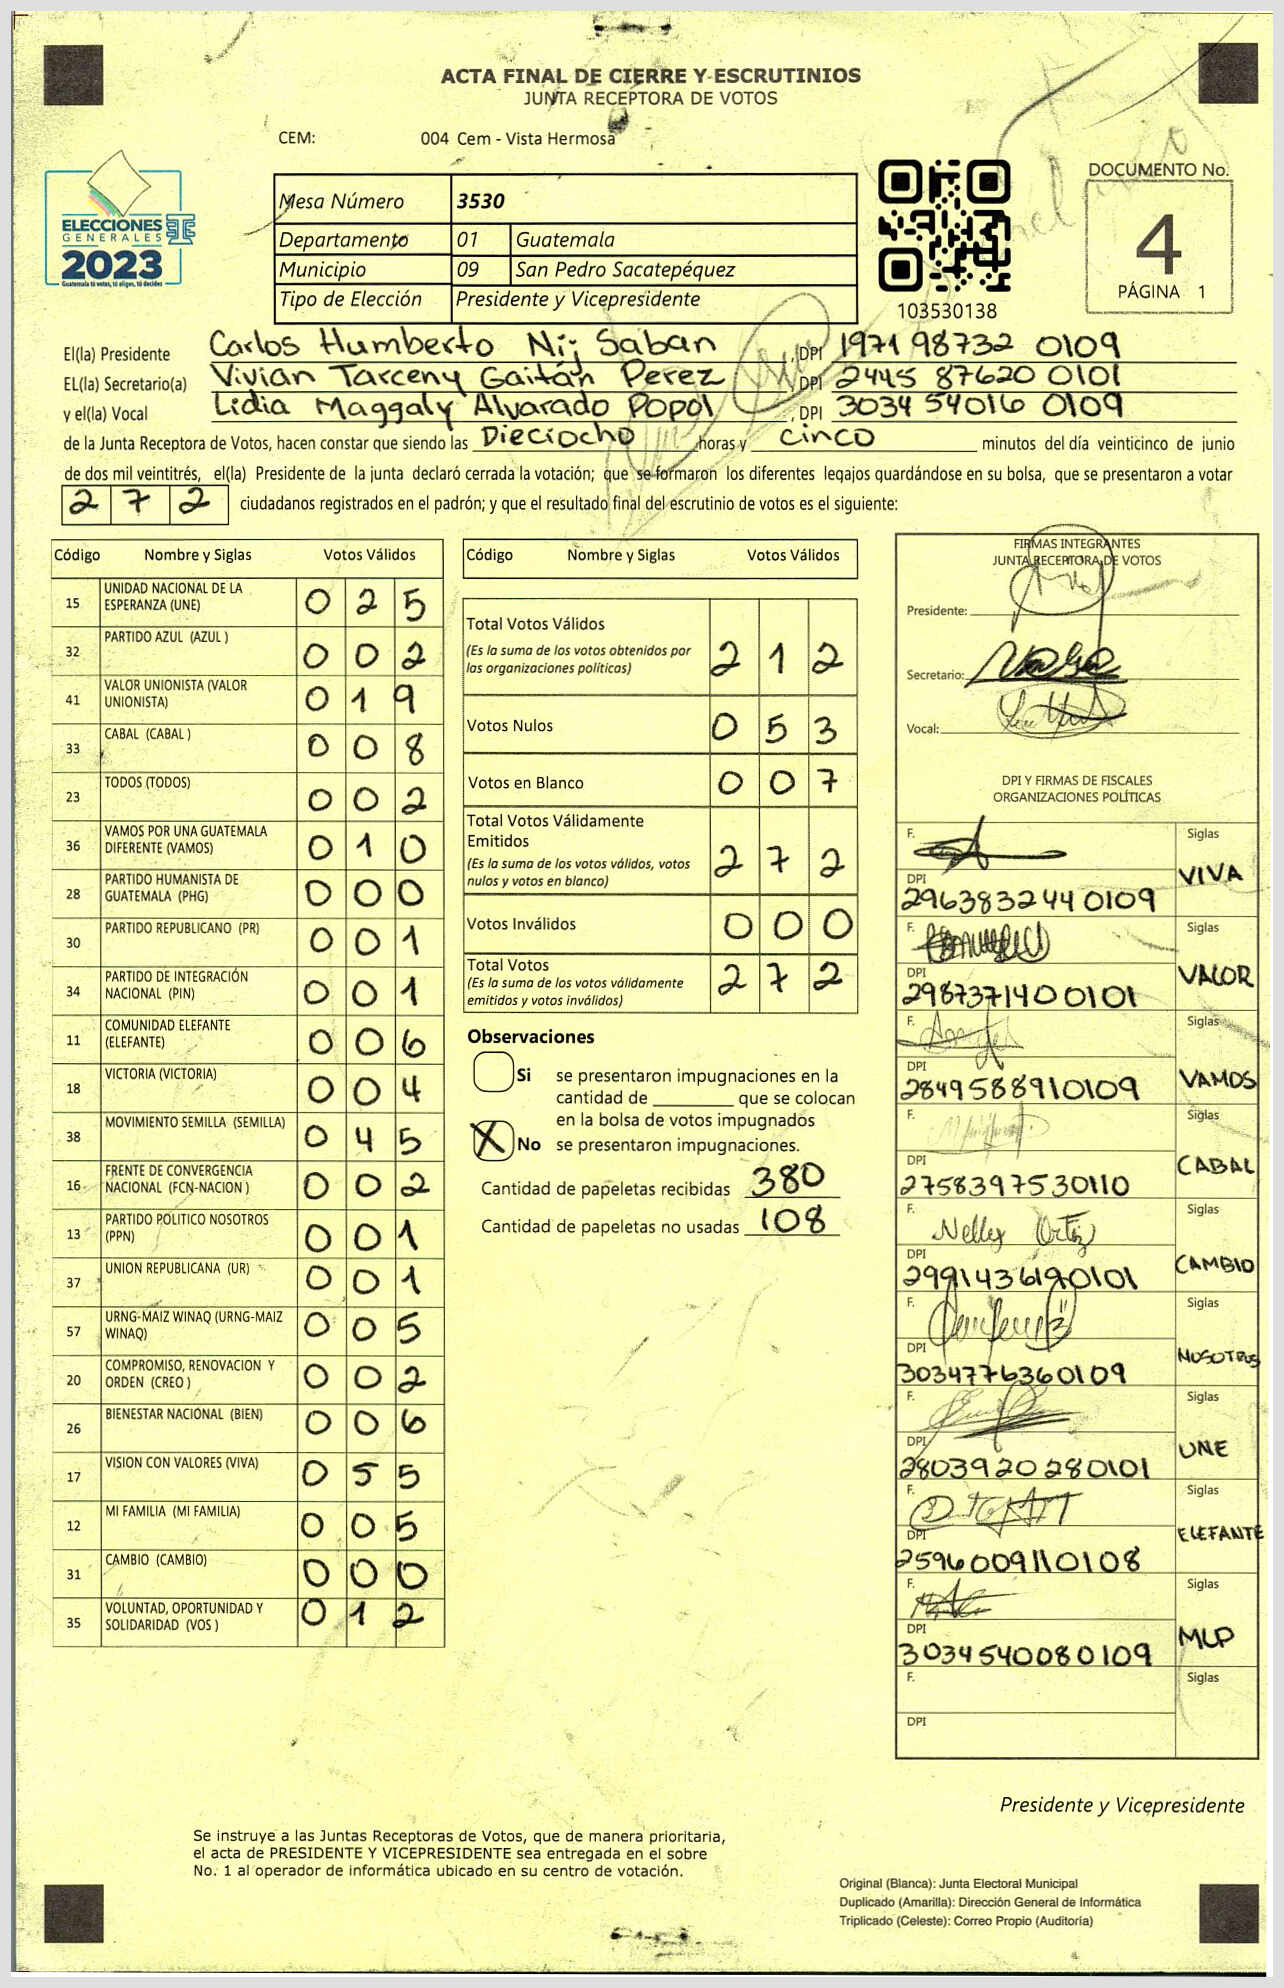 ACTA FINAL DE CIERRE Y ESCRUTINIOS
JUNTA RECEPTORA DE VOTOS
CEM: 004 Cem - Vista Hermosa
ELECCIONES
GENERALES
2023
Guatemala tú votas, tú eliges, tú decides
Mesa Número 3530
Departamento 01 Guatemala
Municipio 09 San Pedro Sacatepéquez
Tipo de Elección Presidente y Vicepresidente
103530138
DOCUMENTO No.
4
PÁGINA 1
El(la) Presidente Carlos Humberto Nij Saban, DPI 1971 98732 0109
EL(la) Secretario(a) Vivian Tarceny Gaitán Perez, DPI 2445 87620 0101
y el(la) Vocal Lidia Maggaly Alvarado Popol, DPI 3034 54016 0109
de la Junta Receptora de Votos, hacen constar que siendo las Dieciocho horas y cinco minutos del día veinticinco de junio
de dos mil veintitrés, el(la) Presidente de la junta declaró cerrada la votación; que se formaron los diferentes legajos guardándose en su bolsa, que se presentaron a votar
2 7 2 ciudadanos registrados en el padrón; y que el resultado final del escrutinio de votos es el siguiente:
Código Nombre y Siglas Votos Válidos
15 UNIDAD NACIONAL DE LA ESPERANZA (UNE) 0 2 5
32 PARTIDO AZUL (AZUL ) 0 0 2
41 VALOR UNIONISTA (VALOR UNIONISTA) 0 1 9
33 CABAL (CABAL ) 0 0 8
23 TODOS (TODOS) 0 0 2
36 VAMOS POR UNA GUATEMALA DIFERENTE (VAMOS) 0 1 0
28 PARTIDO HUMANISTA DE GUATEMALA (PHG) 0 0 0
30 PARTIDO REPUBLICANO (PR) 0 0 1
34 PARTIDO DE INTEGRACIÓN NACIONAL (PIN) 0 0 1
11 COMUNIDAD ELEFANTE (ELEFANTE) 0 0 6
18 VICTORIA (VICTORIA) 0 0 4
38 MOVIMIENTO SEMILLA (SEMILLA) 0 4 5
16 FRENTE DE CONVERGENCIA NACIONAL (FCN-NACION ) 0 0 2
13 PARTIDO POLITICO NOSOTROS (PPN) 0 0 1
37 UNION REPUBLICANA (UR) 0 0 1
57 URNG-MAIZ WINAQ (URNG-MAIZ WINAQ) 0 0 5
20 COMPROMISO, RENOVACION Y ORDEN (CREO ) 0 0 2
26 BIENESTAR NACIONAL (BIEN) 0 0 6
17 VISION CON VALORES (VIVA) 0 5 5
12 MI FAMILIA (MI FAMILIA) 0 0 5
31 CAMBIO (CAMBIO) 0 0 0
35 VOLUNTAD, OPORTUNIDAD Y SOLIDARIDAD (VOS ) 0 1 2
Código Nombre y Siglas Votos Válidos
Total Votos Válidos 2 1 2
(Es la suma de los votos obtenidos por
las organizaciones políticas)
Votos Nulos 0 5 3
Votos en Blanco 0 0 7
Total Votos Válidamente
Emitidos 2 7 2
(Es la suma de los votos válidos, votos
nulos y votos en blanco)
Votos Inválidos 0 0 0
Total Votos 2 7 2
(Es la suma de los votos válidamente
emitidos y votos inválidos)
Observaciones
Si se presentaron impugnaciones en la
cantidad de ________ que se colocan
en la bolsa de votos impugnados
X No se presentaron impugnaciones.
Cantidad de papeletas recibidas 380
Cantidad de papeletas no usadas 108
FIRMAS INTEGRANTES
JUNTA RECEPTORA DE VOTOS
Presidente:
Secretario:
Vocal:
DPI Y FIRMAS DE FISCALES
ORGANIZACIONES POLÍTICAS
F. Siglas
DPI VIVA
2963832440109
F. Siglas
DPI VALOR
2987371400101
F. Siglas
DPI VAMOS
2849588910109
F. Siglas
DPI CABAL
2758397530110
F. Nelly Ortiz Siglas
DPI CAMBIO
2991436190101
F. Siglas
DPI NOSOTROS
3034776360109
F. Siglas
DPI UNE
2803920280101
F. Siglas
DPI ELEFANTE
2596009110108
F. Siglas
DPI MLP
3034540080109
F. Siglas
DPI
Presidente y Vicepresidente
Se instruye a las Juntas Receptoras de Votos, que de manera prioritaria,
el acta de PRESIDENTE Y VICEPRESIDENTE sea entregada en el sobre
No. 1 al operador de informática ubicado en su centro de votación.
Original (Blanca): Junta Electoral Municipal
Duplicado (Amarilla): Dirección General de Informática
Triplicado (Celeste): Correo Propio (Auditoría)